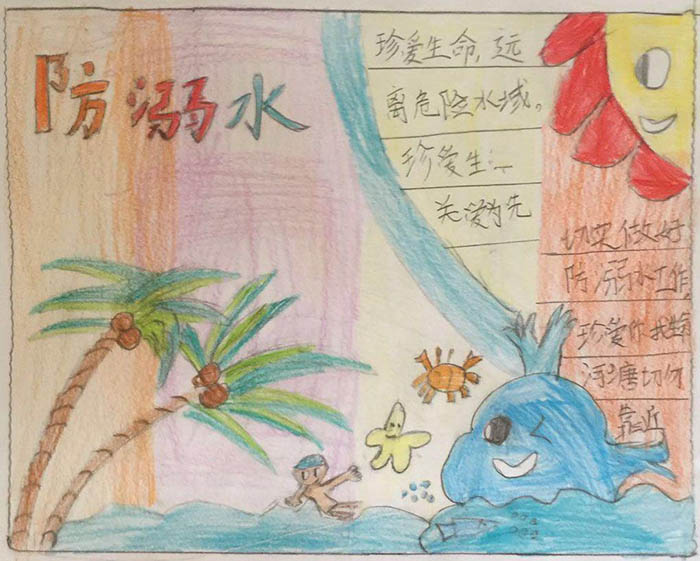 防溺水
珍爱生命,远
离危险水域。
珍爱生
关爱为先
切实做好
防溺水工作
珍爱你我
塘切勿
靠近